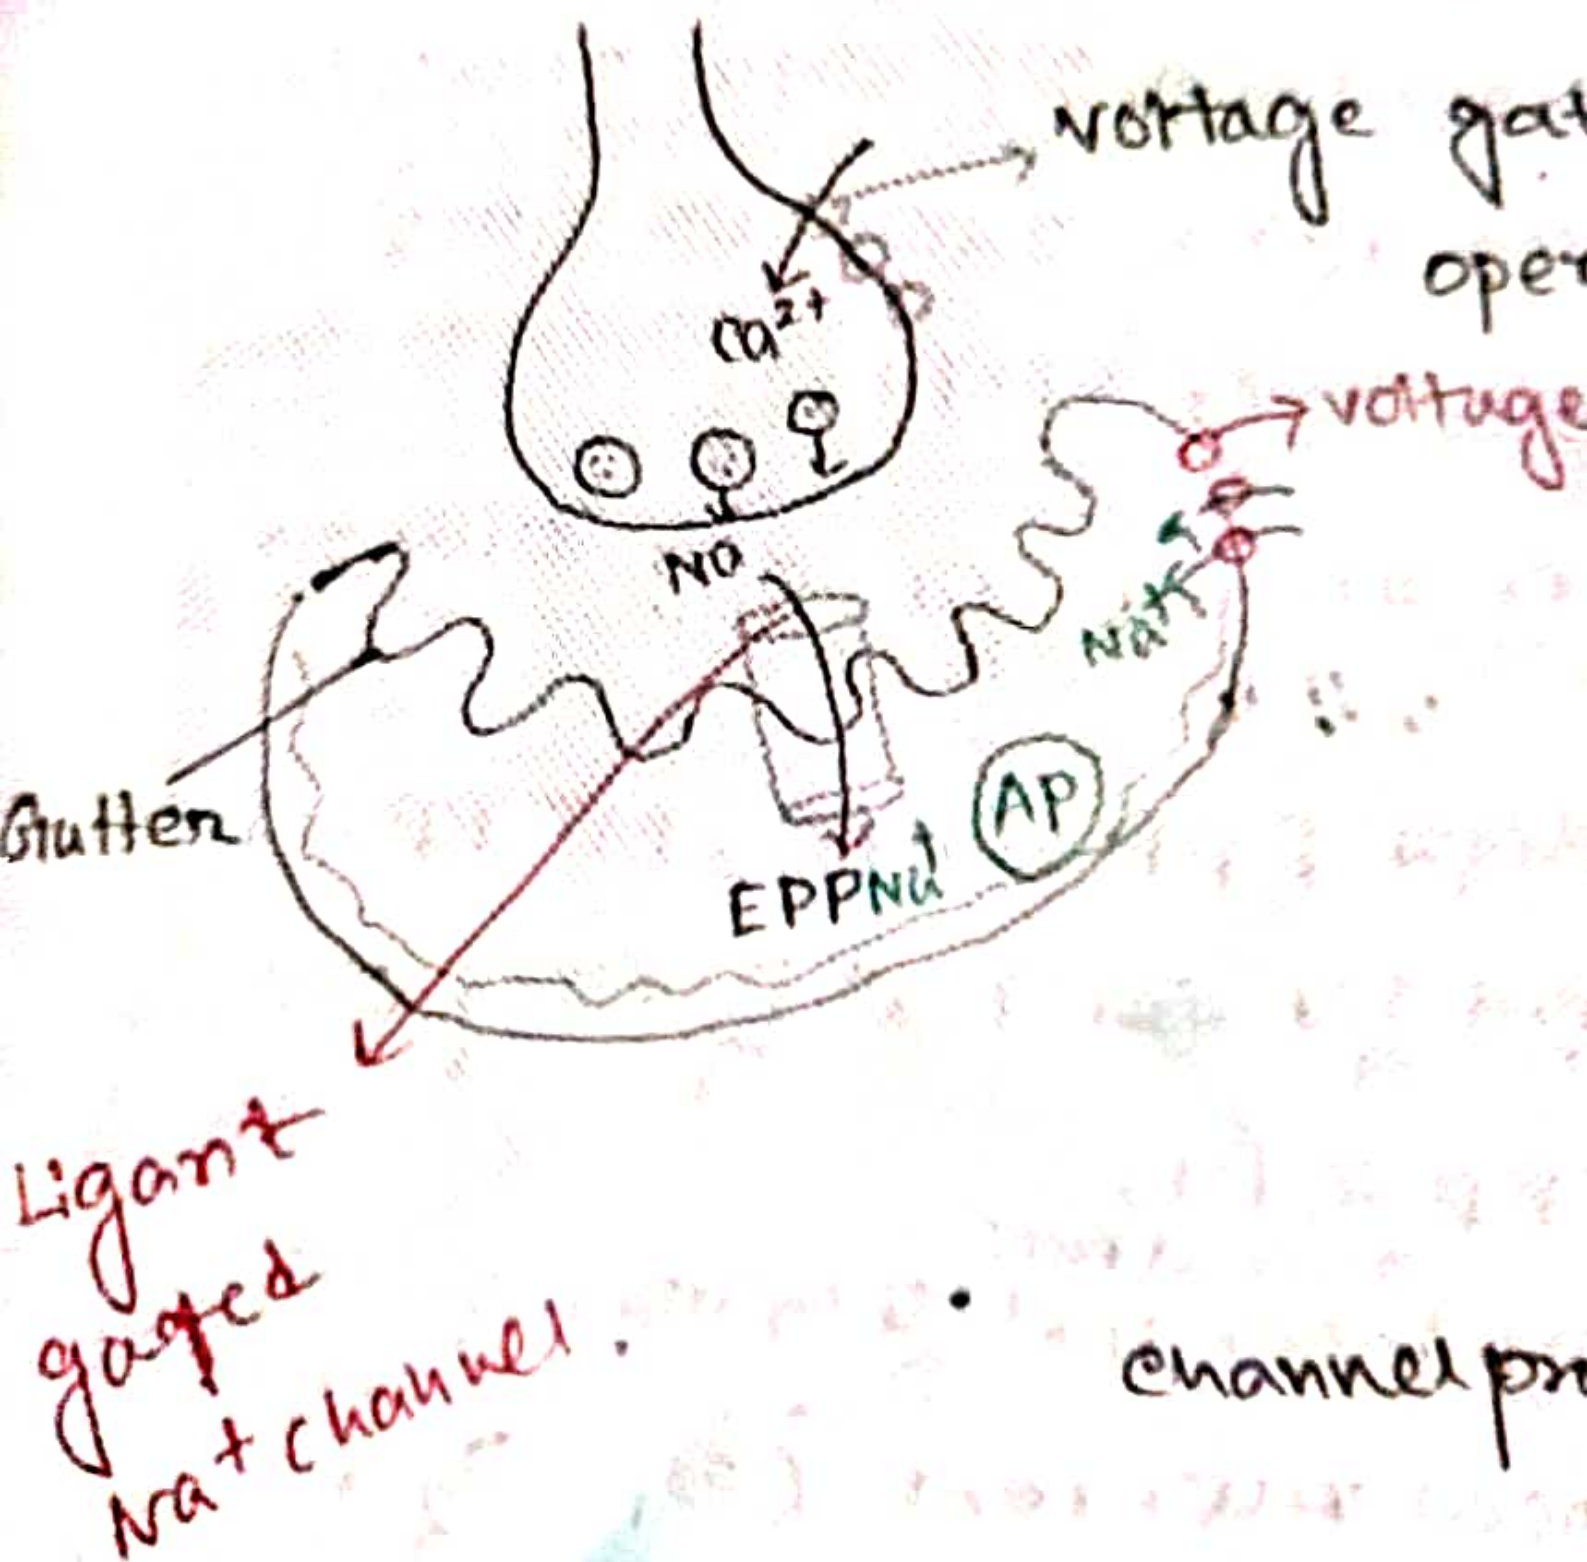 voltage gat
oper
Ca²⁺
voltage
Na
Na⁺
Gutter
AP
EPP Na⁺
Ligant
gaged
Na⁺ channel.
channel pro